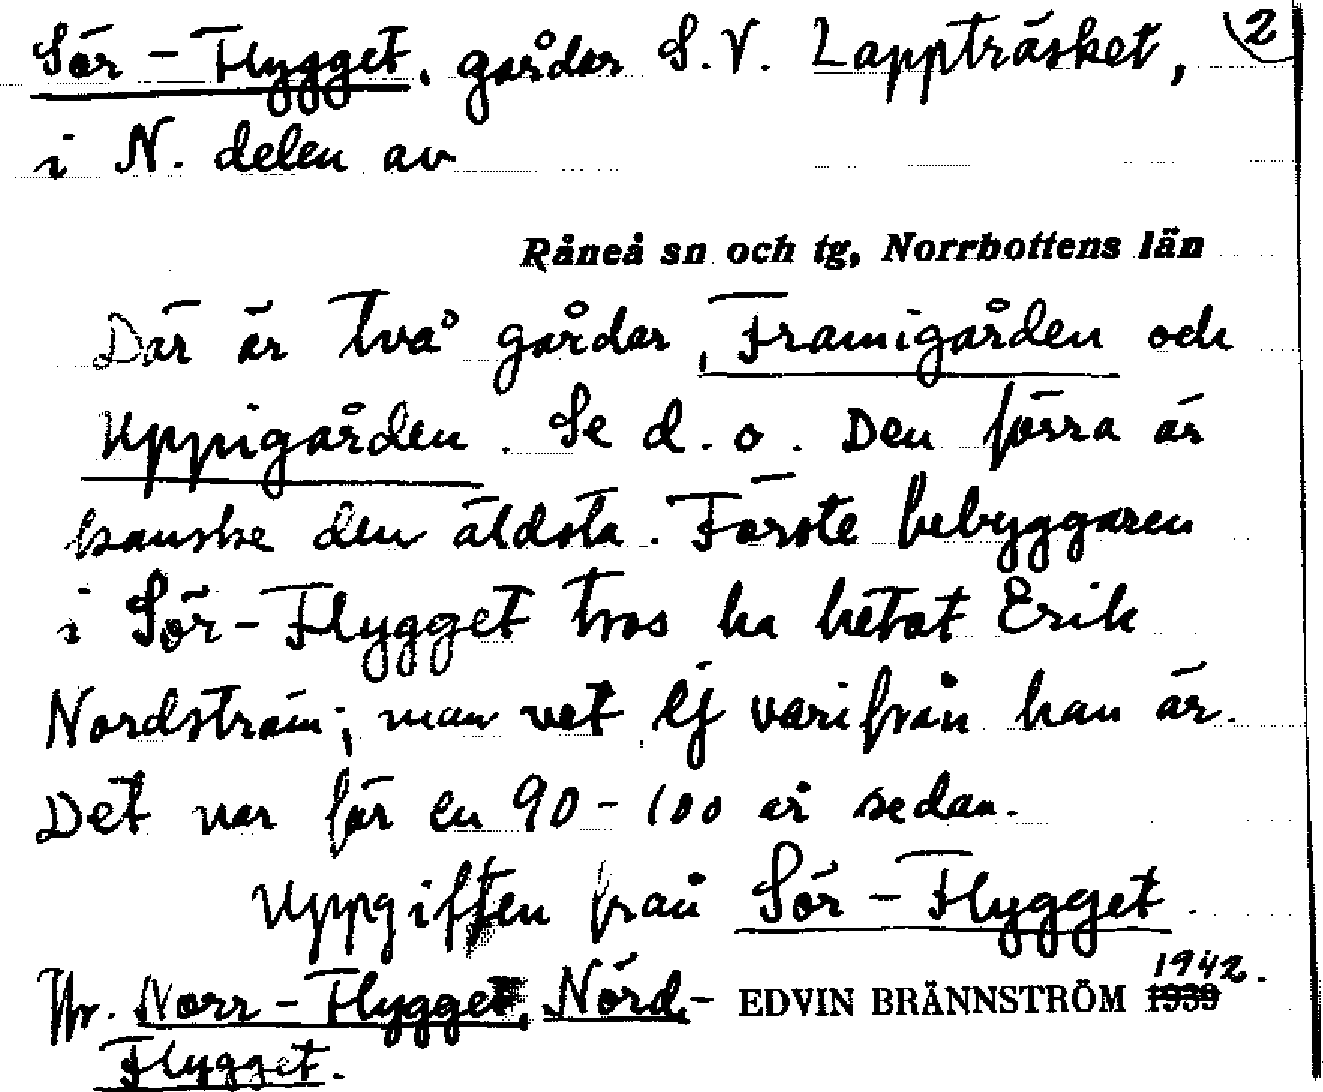 Sör-Flygget, gårdar S.V. Lappträsket, 2
i N. delen av
Råneå sn och tg, Norrbottens län
Där är två gårdar, Framigården och
Uppigården. Se d.o. Den förra är
kanske den äldsta. Förste bebyggaren
i Sör-Flygget tros ha hetat Erik
Nordström; man vet ej varifrån han är.
Det var för en 90-100 år sedan.
Uppgiften från Sör-Flygget.
Jfr. Norr-Flygget, Nörd- EDVIN BRÄNNSTRÖM 1939 1942.
Flygget.